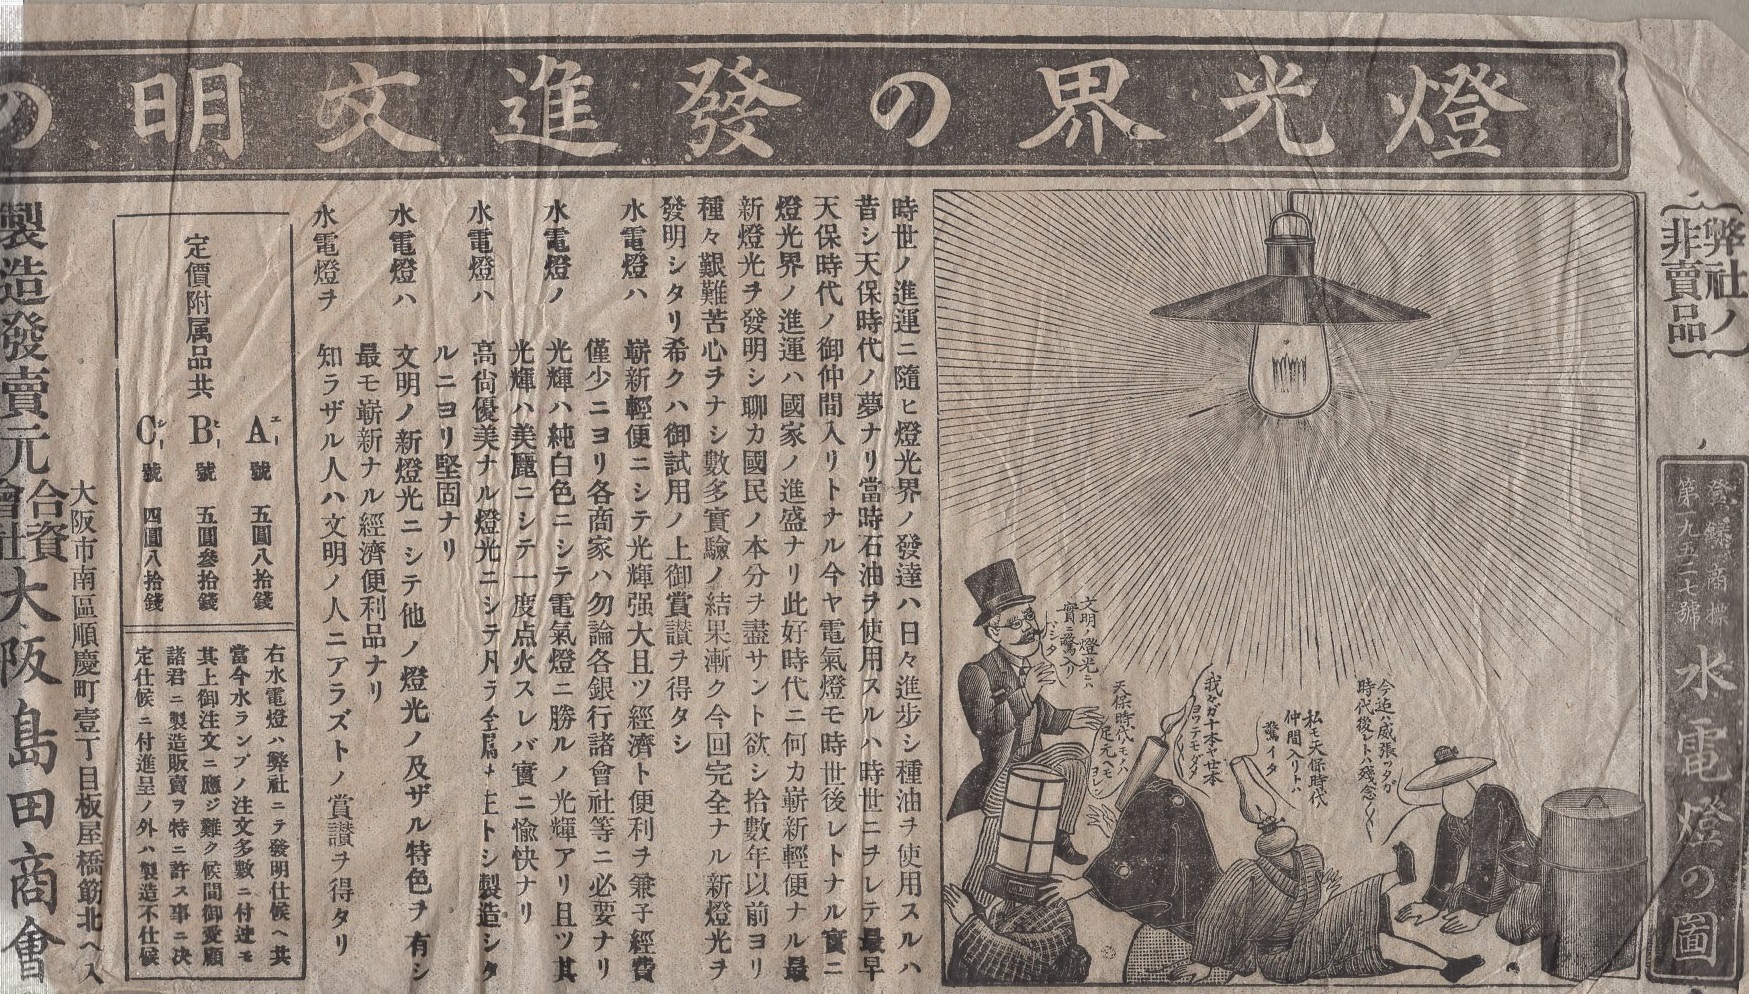 燈光界の發進文明の
弊社ノ
非賣品
登錄商標
第九五二七號
水電燈の圖
文明ノ燈光ニハ
實ニ驚入リ
マシタ
天保時代モノハ
足元ヘモ
ヨレン
我々ガ十本ヤ廿本
ヨツテモダメ
私モ天保時代
仲間入リトハ
驚イタ
今迄ハ威張ッタガ
時代後レトハ殘念〱〱
時世ノ進運ニ隨ヒ燈光界ノ發達ハ日々進步シ種油ヲ使用スルハ
昔シ天保時代ノ夢ナリ當時石油ヲ使用スルハ時世ニヲレテ最早
天保時代ノ御仲間入リトナル今ヤ電氣燈モ時世後レトナル實ニ
燈光界ノ進運ハ國家ノ進盛ナリ此好時代ニ何カ嶄新輕便ナル最
新燈光ヲ發明シ聊カ國民ノ本分ヲ盡サント欲シ拾數年以前ヨリ
種々艱難苦心ヲナシ數多實驗ノ結果漸ク今回完全ナル新燈光ヲ
發明シタリ希クハ御試用ノ上御賞讃ヲ得タシ
水電燈ハ 嶄新輕便ニシテ光輝强大且ツ經濟ト便利ヲ兼子經費
僅少ニヨリ各商家ハ勿論各銀行諸會社等ニ必要ナリ
水電燈ノ 光輝ハ純白色ニシテ電氣燈ニ勝ルノ光輝アリ且ツ其
光輝ハ美麗ニシテ一度点火スレバ實ニ愉快ナリ
水電燈ハ 高尙優美ナル燈光ニシテ凡テ金属ヲ主トシ製造シタ
ルニヨリ堅固ナリ
水電燈ハ 文明ノ新燈光ニシテ他ノ燈光ノ及ザル特色ヲ有シ
最モ嶄新ナル經濟便利品ナリ
水電燈ヲ 知ラザル人ハ文明ノ人ニアラズトノ賞讃ヲ得タリ
定價附属品共
A號 五圓八拾錢
エー
B號 五圓參拾錢
ビー
C號 四圓八拾錢
シー
右水電燈ハ弊社ニテ發明仕候ヘ共
當今水ランプノ注文多數ニ付迚モ
其上御注文ニ應ジ難ク候間御愛顧
諸君ニ製造販賣ヲ特ニ許ス事ニ決
定仕候ニ付進呈ノ外ハ製造不仕候
大阪市南區順慶町壹丁目板屋橋筋北ヘ入
製造發賣元 合資會社 大阪島田商會